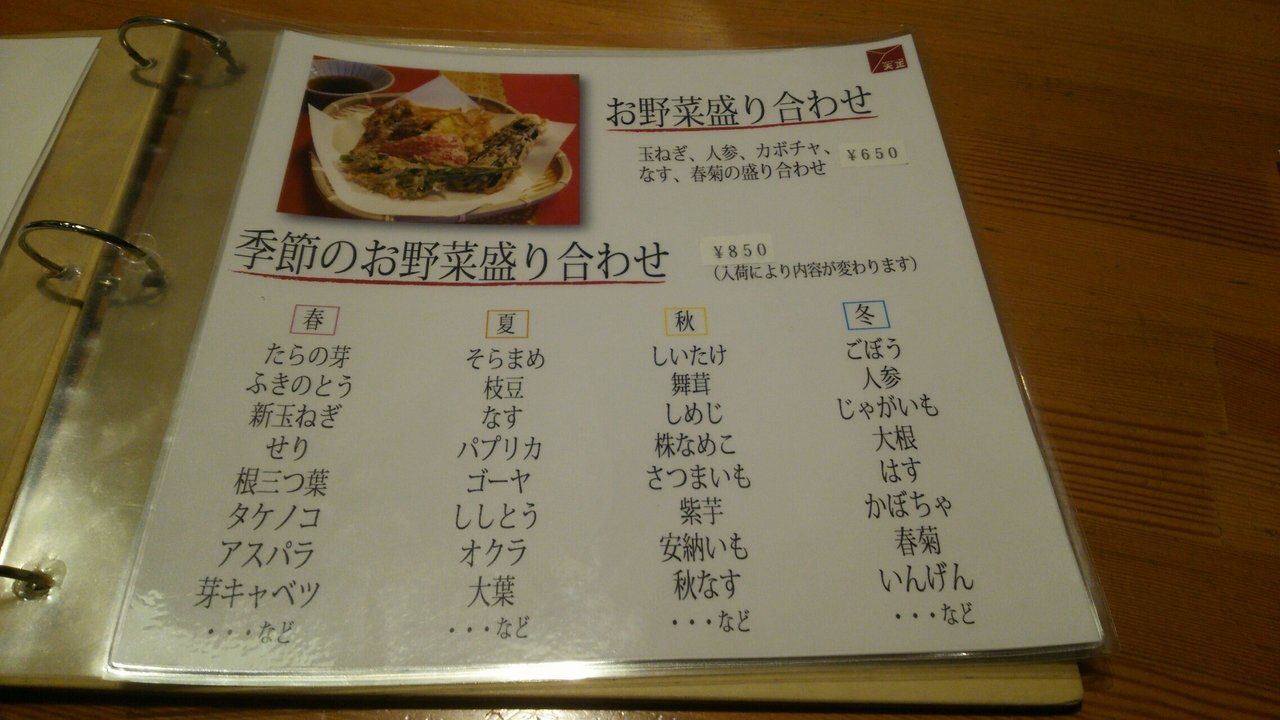 お野菜盛り合わせ
玉ねぎ、人参、カボチャ、
なす、春菊の盛り合わせ
¥650
季節のお野菜盛り合わせ
¥850
（入荷により内容が変わります）
春
たらの芽
ふきのとう
新玉ねぎ
せり
根三つ葉
タケノコ
アスパラ
芽キャベツ
・・・など
夏
そらまめ
枝豆
なす
パプリカ
ゴーヤ
ししとう
オクラ
大葉
・・・など
秋
しいたけ
舞茸
しめじ
株なめこ
さつまいも
紫芋
安納いも
秋なす
・・・など
冬
ごぼう
人参
じゃがいも
大根
はす
かぼちゃ
春菊
いんげん
・・・など